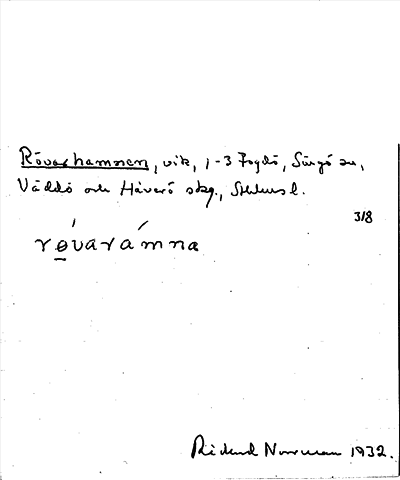 Rövarhamnen, vik, 1-3 Fogdö, Singö sn,
Väddö och Häverö skg., Sthlms l.
3/8
rövarámna
Rickard Norrman 1932.